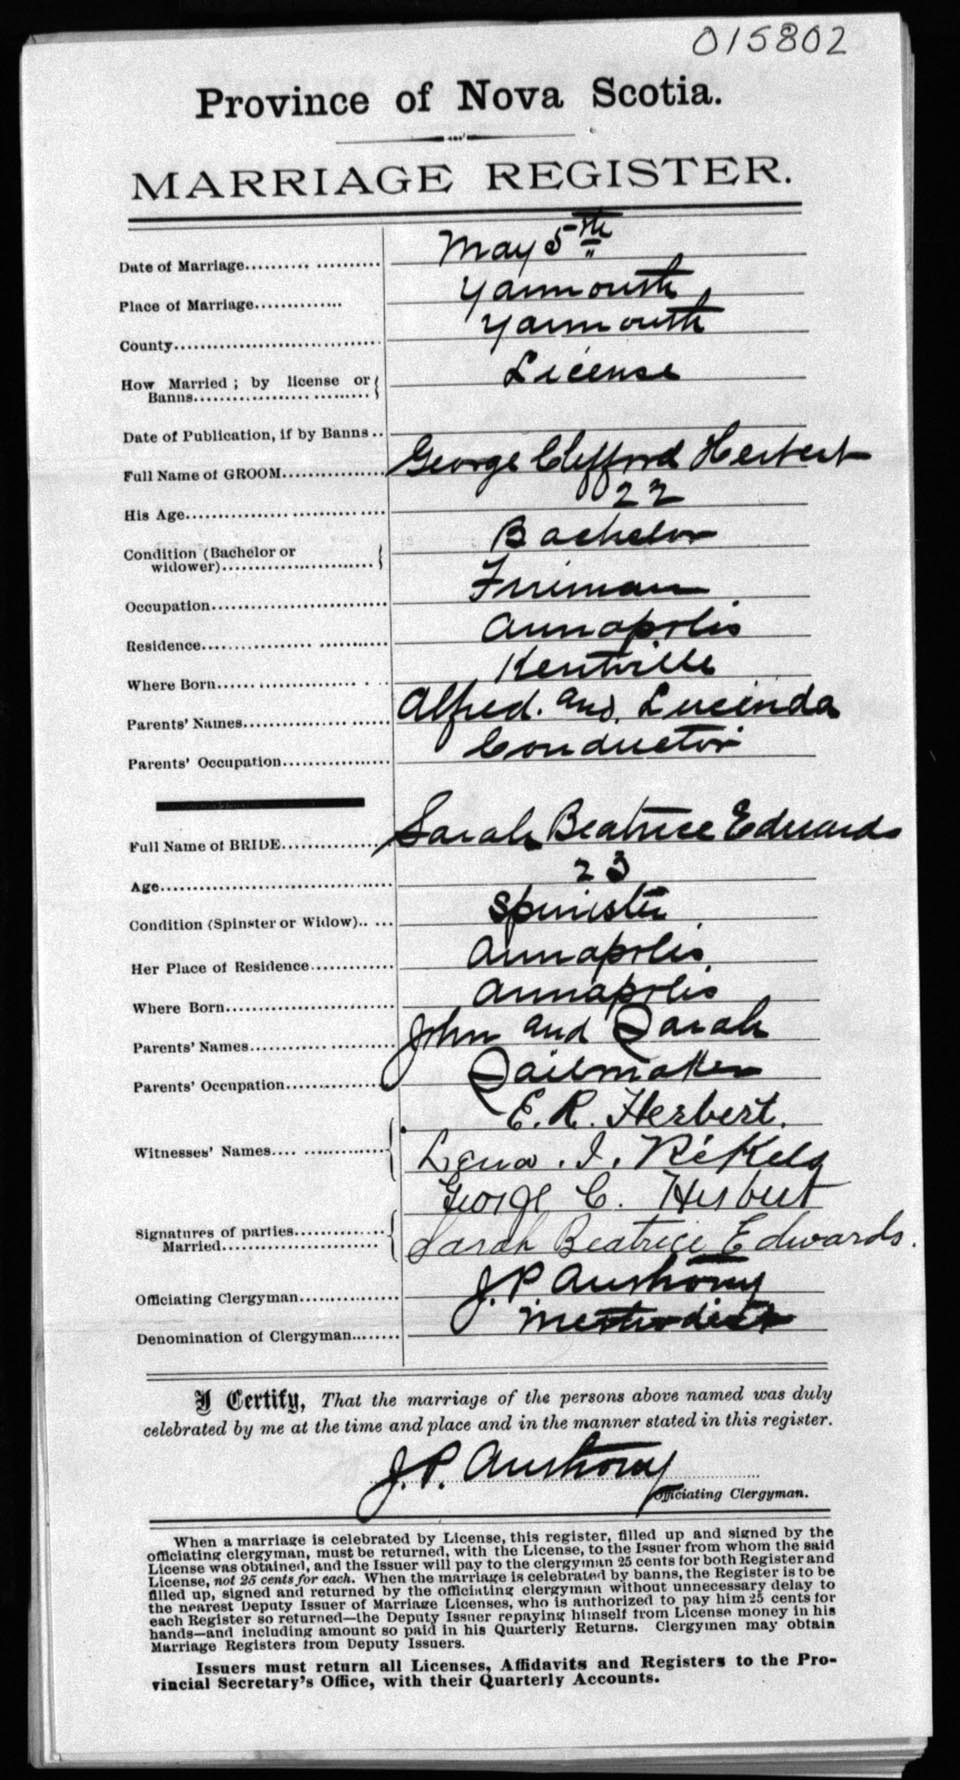 015802
Province of Nova Scotia.
MARRIAGE REGISTER.
Date of Marriage.......... May 5th
Place of Marriage.............. Yarmouth
County................................ Yarmouth
How Married; by license or Banns........................... License
Date of Publication, if by Banns ..
Full Name of GROOM............... George Clifford Herbert
His Age............................... 22
Condition (Bachelor or widower)........................... Bachelor
Occupation........................... Fireman
Residence............................ Annapolis
Where Born.......................... Kentville
Parents' Names..................... Alfred. and. Lucinda
Parents' Occupation............... Conductor
Full Name of BRIDE............... Sarah Beatrice Edwards
Age.................................... 23
Condition (Spinster or Widow)..... Spinster
Her Place of Residence............ Annapolis
Where Born.......................... Annapolis
Parents' Names..................... John and Sarah
Parents' Occupation............... Sailmaker
Witnesses' Names.................. E. R. Herbert.
Lena. I.
Signatures of parties Married...................... George C. Herbert
Sarah Beatrice Edwards.
Officiating Clergyman.............. J. P. Anthony
Denomination of Clergyman....... Methodist
I Certify, That the marriage of the persons above named was duly
celebrated by me at the time and place and in the manner stated in this register.
J. P. Anthony
Officiating Clergyman.
When a marriage is celebrated by License, this register, filled up and signed by the
officiating clergyman, must be returned, with the License, to the Issuer from whom the said
License was obtained, and the Issuer will pay to the clergyman 25 cents for both Register and
License, not 25 cents for each. When the marriage is celebrated by banns, the Register is to be
filled up, signed and returned by the officiating clergyman without unnecessary delay to
the nearest Deputy Issuer of Marriage Licenses, who is authorized to pay him 25 cents for
each Register so returned—the Deputy Issuer repaying himself from License money in his
hands—and including amount so paid in his Quarterly Returns. Clergymen may obtain
Marriage Registers from Deputy Issuers.
Issuers must return all Licenses, Affidavits and Registers to the Pro-
vincial Secretary's Office, with their Quarterly Accounts.